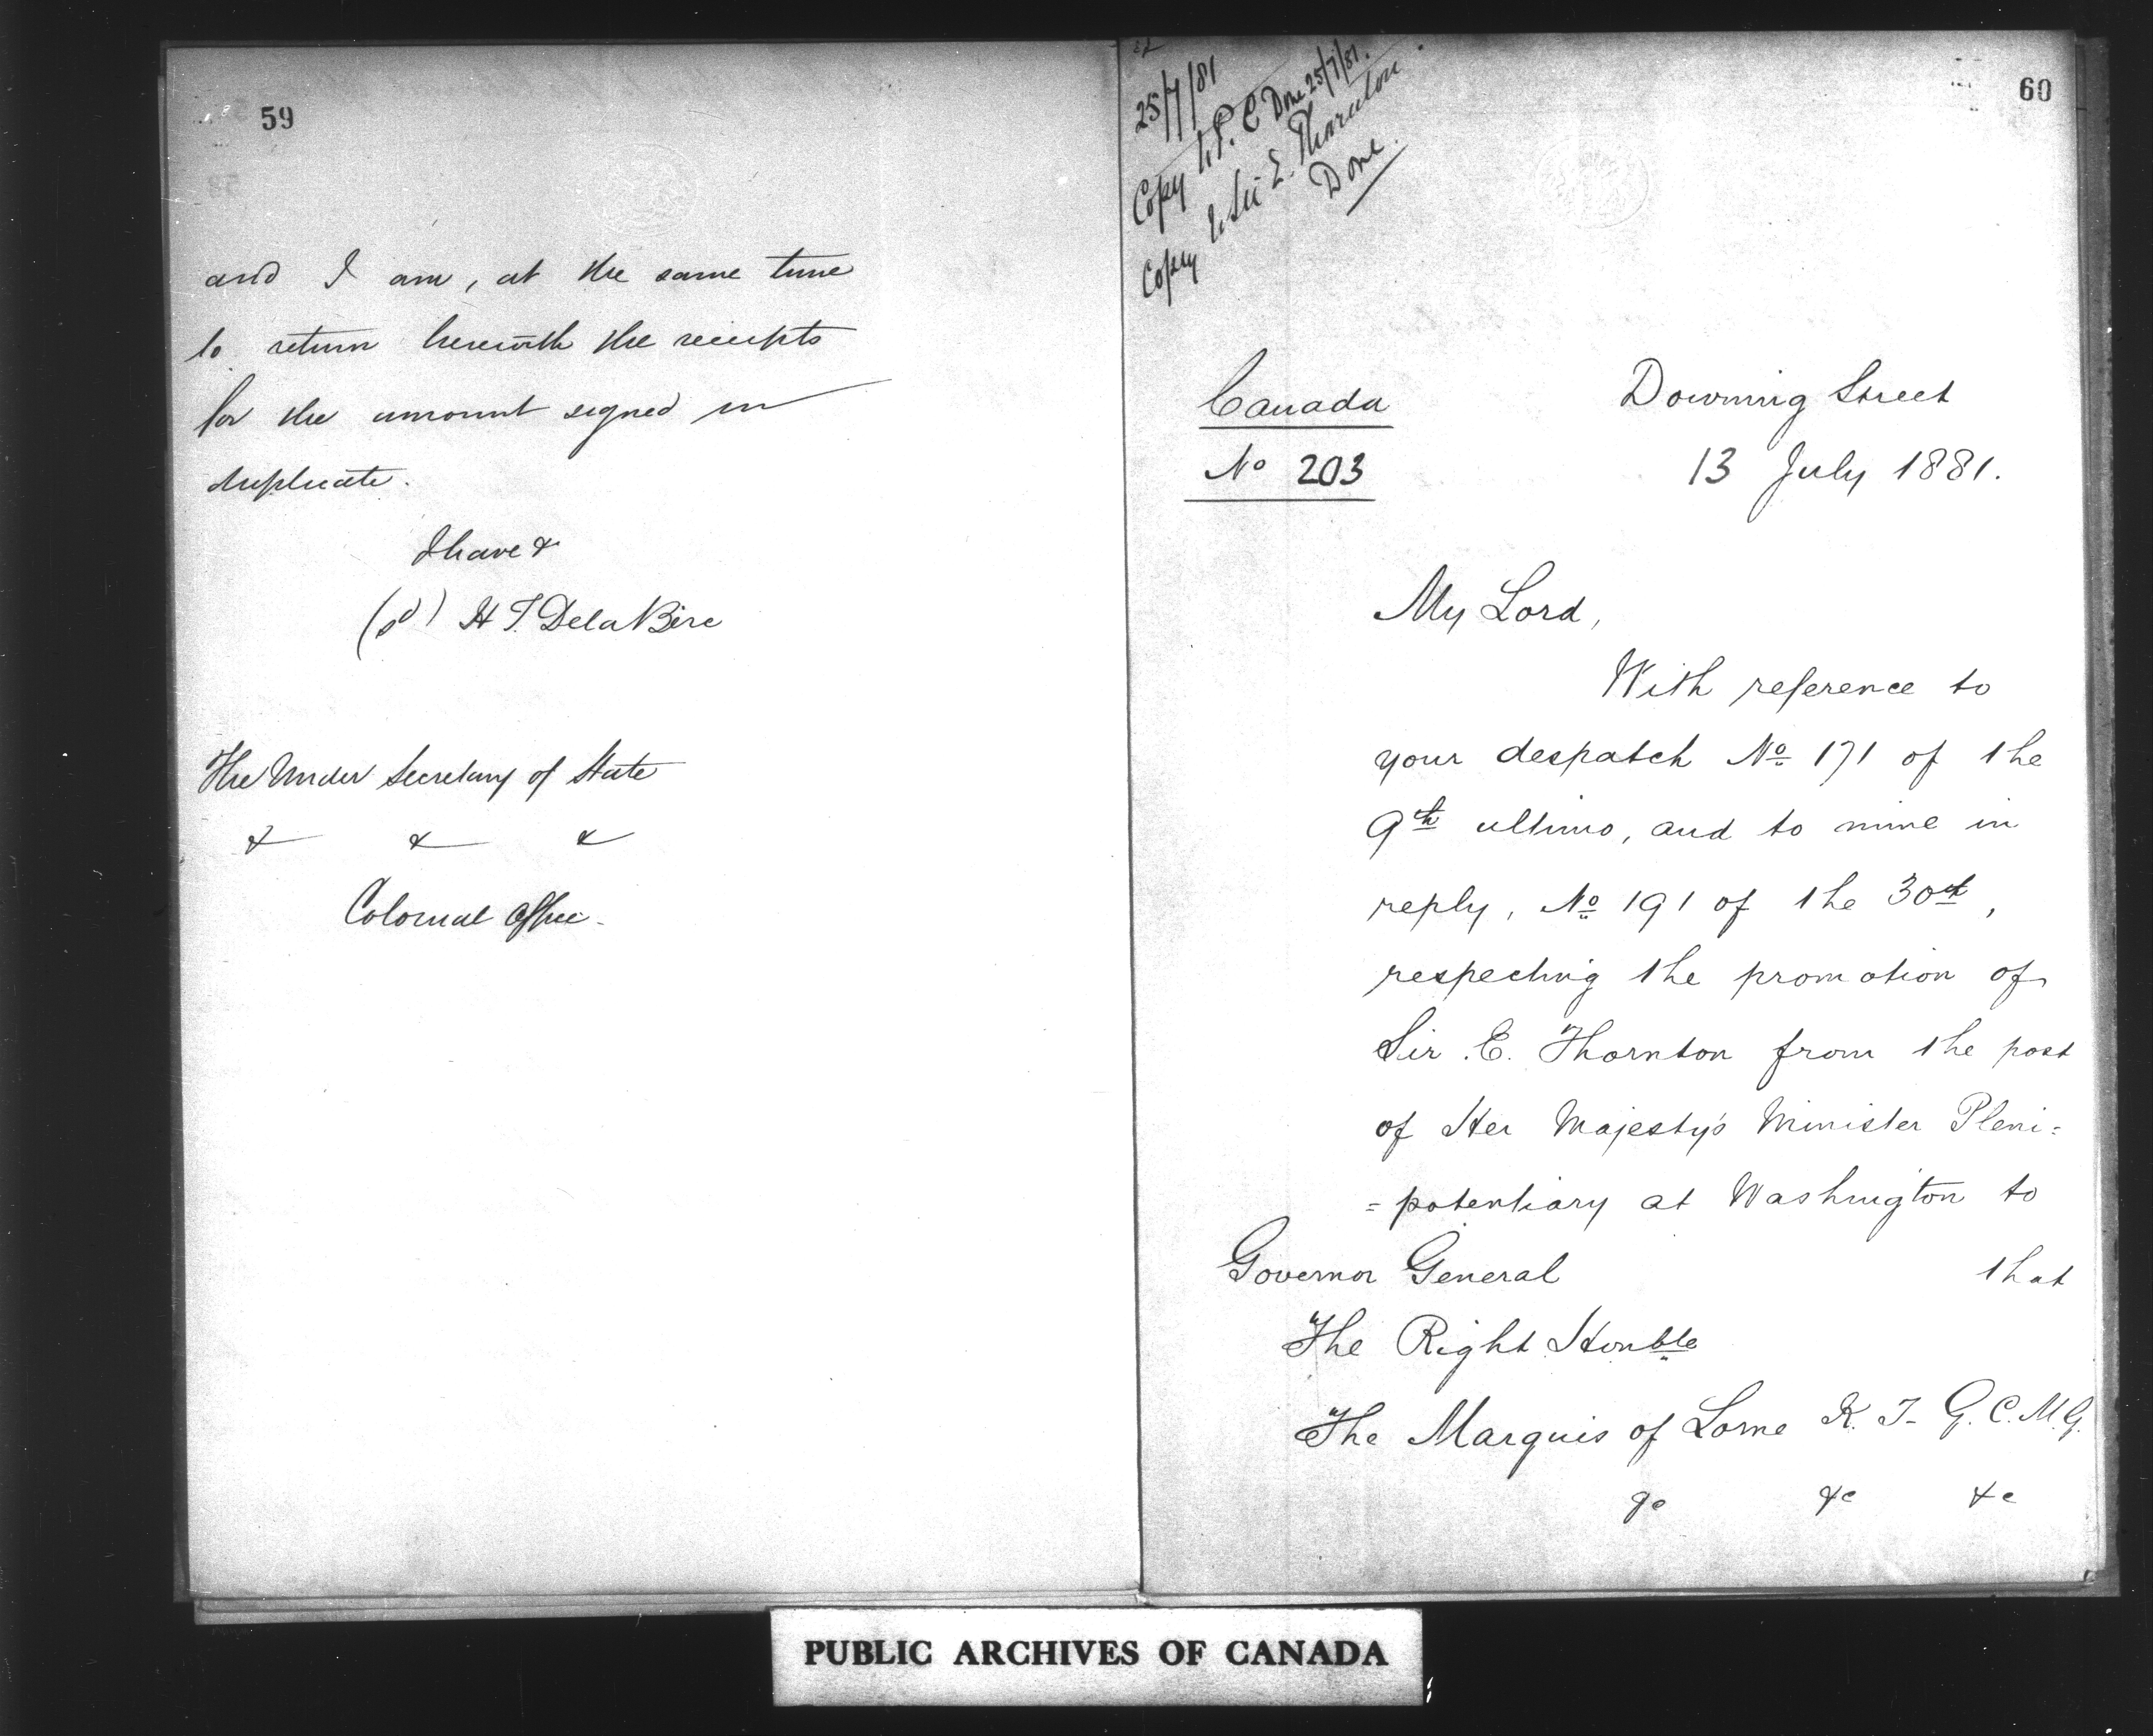 59
and I am, at the same time
to return herewith the receipts
for the amount signed in
duplicate.
I have &
(sd) H T. DelaBère
The Under Secretary of State
& & &
Colonial Office.
60
25/7/81
Copy to P. C Done 25/7/81.
Copy to Sir E. Thornton.
Done.
Canada
No 203
Downing Street
13 July 1881.
My Lord,
With reference to
your despatch No 171 of the
9th ultimo, and to mine in
reply, No 191 of the 30th,
respecting the promotion of
Sir E. Thornton from the post
of Her Majesty's Minister Pleni=
=potentiary at Washington to
that
Governor General
The Right Honble
The Marquis of Lorne K. T. G. C. M. G.
&c &c &c
PUBLIC ARCHIVES OF CANADA